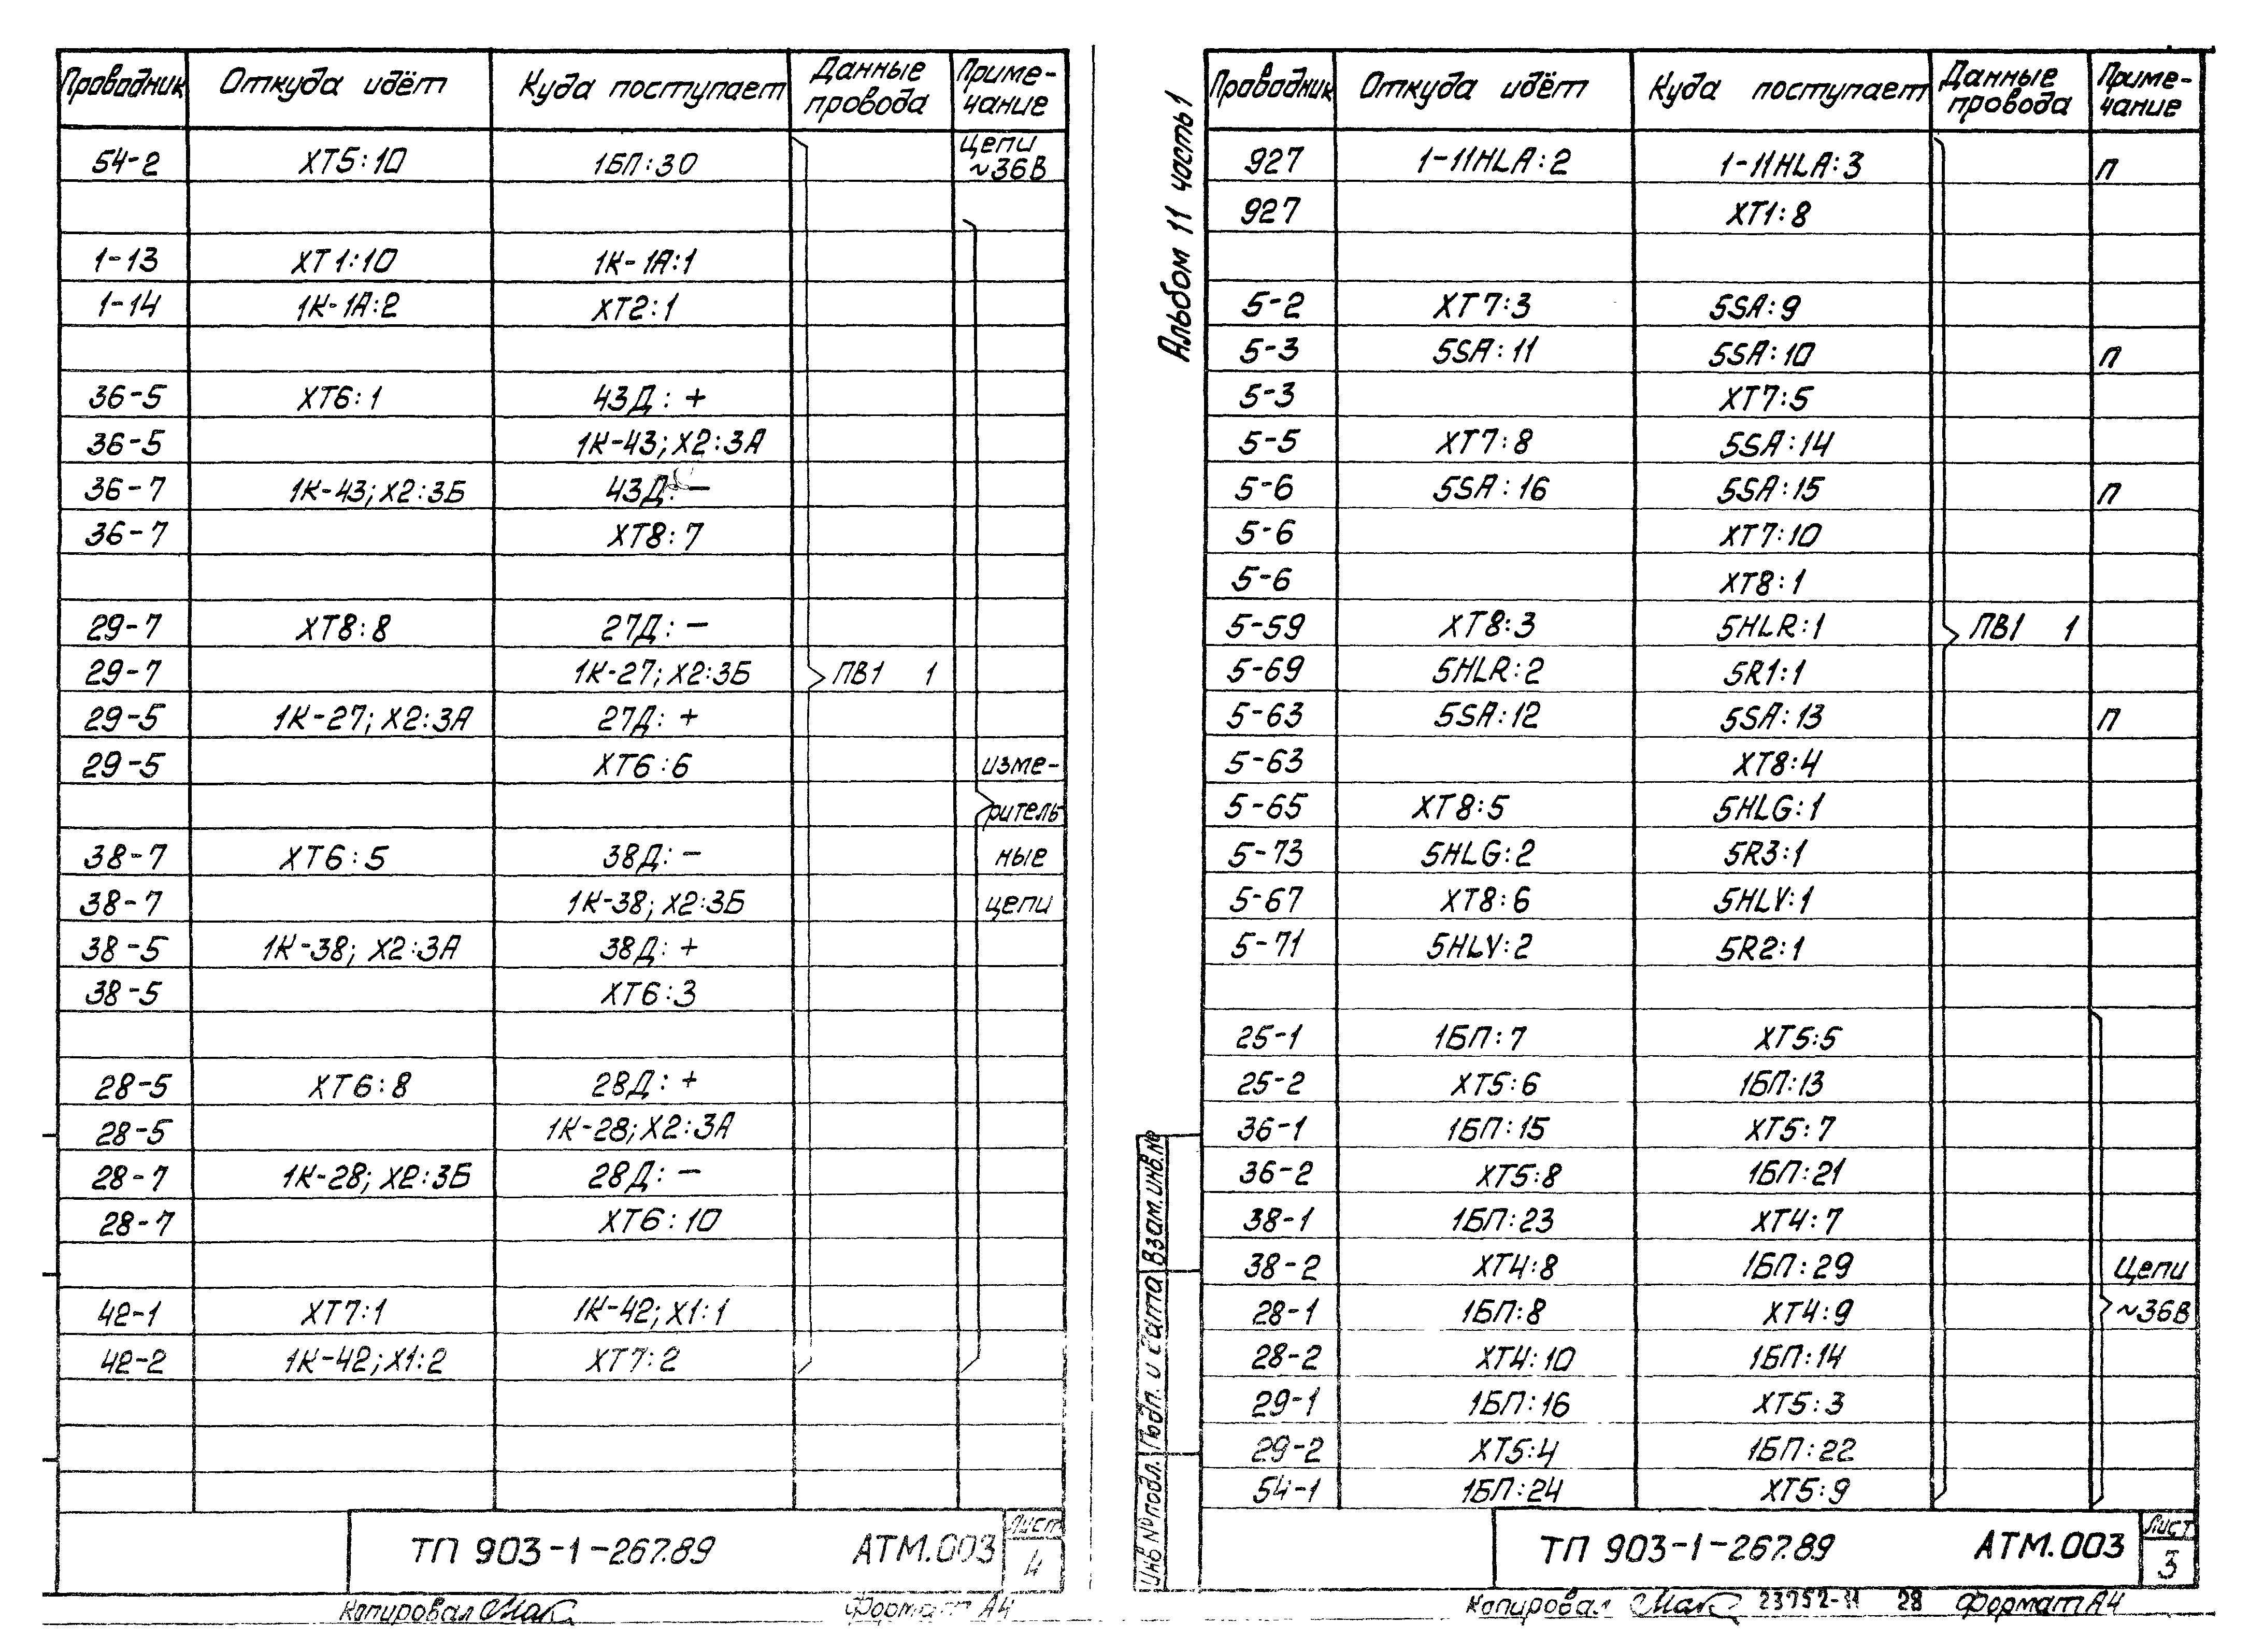 Проводник Откуда идёт Куда поступает Данные провода Приме-чание
54-2 XT5:10 1БП:30 Цепи ~36В
1-13 XT1:10 1К-1А:1
1-14 1К-1А:2 XT2:1
36-5 XT6:1 43Д: +
36-5 1К-43; X2:3А
36-7 1К-43; X2:3Б 43Д: —
36-7 XT8:7
29-7 XT8:8 27Д: —
29-7 1К-27; X2:3Б ПВ1 1
29-5 1К-27; X2:3А 27Д: +
29-5 XT6:6 изме-
ритель
38-7 XT6:5 38Д: — ные
38-7 1К-38; X2:3Б цепи
38-5 1К-38; X2:3А 38Д: +
38-5 XT6:3
28-5 XT6:8 28Д: +
28-5 1К-28; X2:3А
28-7 1К-28; X2:3Б 28Д: —
28-7 XT6:10
42-1 XT7:1 1К-42; X1:1
42-2 1К-42; X1:2 XT7:2
ТП 903-1-267.89 АТМ.003 Лист 4
Копировал Формат А4
Альбом 11 часть 1
Проводник Откуда идёт Куда поступает Данные провода Приме-чание
927 1-11HLA:2 1-11HLA:3 П
927 XT1:8
5-2 XT7:3 5SA:9
5-3 5SA:11 5SA:10 П
5-3 XT7:5
5-5 XT7:8 5SA:14
5-6 5SA:16 5SA:15 П
5-6 XT7:10
5-6 XT8:1
5-59 XT8:3 5HLR:1 ПВ1 1
5-69 5HLR:2 5R1:1
5-63 5SA:12 5SA:13 П
5-63 XT8:4
5-65 XT8:5 5HLG:1
5-73 5HLG:2 5R3:1
5-67 XT8:6 5HLV:1
5-71 5HLV:2 5R2:1
25-1 1БП:7 XT5:5
25-2 XT5:6 1БП:13
36-1 1БП:15 XT5:7
36-2 XT5:8 1БП:21
38-1 1БП:23 XT4:7
38-2 XT4:8 1БП:29 Цепи
28-1 1БП:8 XT4:9 ~36В
28-2 XT4:10 1БП:14
29-1 1БП:16 XT5:3
29-2 XT5:4 1БП:22
54-1 1БП:24 XT5:9
Инв № подл. Подп. и дата Взам. инв. №
ТП 903-1-267.89 АТМ.003 Лист 3
Копировал 23952-11 28 Формат А4